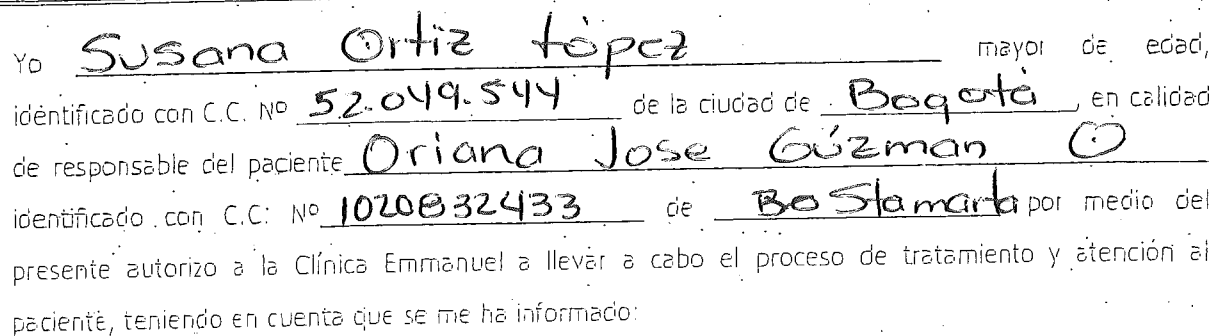 Yo Susana Ortiz López mayor de edad,
identificado con C.C. Nº 52.049.544 de la ciudad de Bogotá, en calidad
de responsable del paciente Oriana Jose Gúzman O
identificado con C.C: Nº 1020832433 de Bo Stamarta por medio del
presente autorizo a la Clínica Emmanuel a llevar a cabo el proceso de tratamiento y atención al
paciente, teniendo en cuenta que se me ha informado: